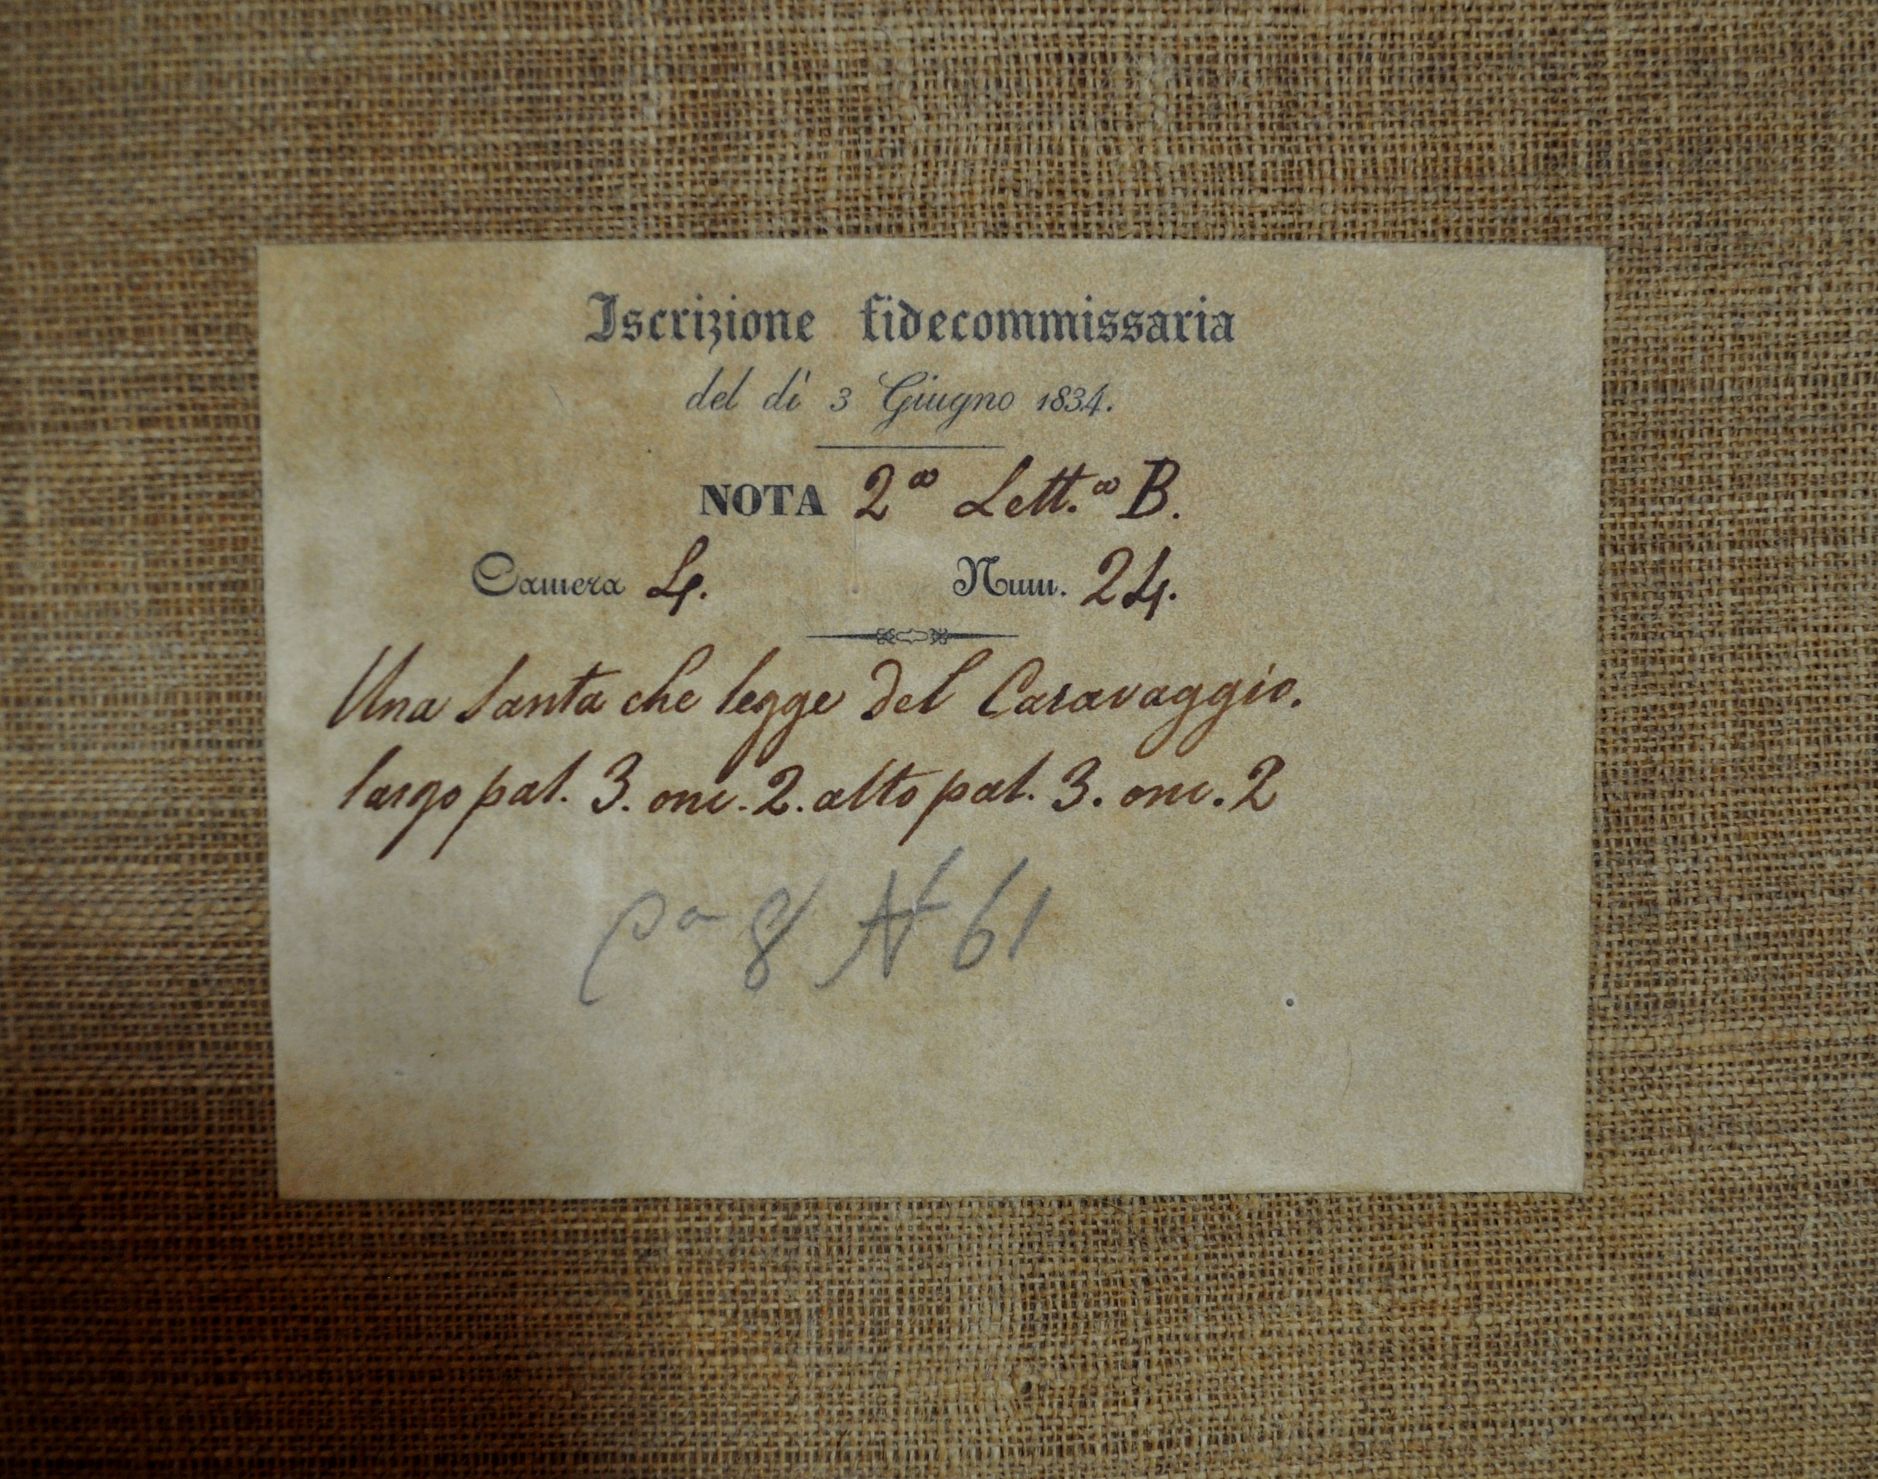 Iscrizione fidecommissaria
del dì 3 Giugno 1834.
NOTA 2ª Lett.ª B.
Camera 4. Num. 24.
Una Santa che legge del Caravaggio.
largo pal. 3. onc. 2. alto pal. 3. onc. 2
Cª 8 N 61